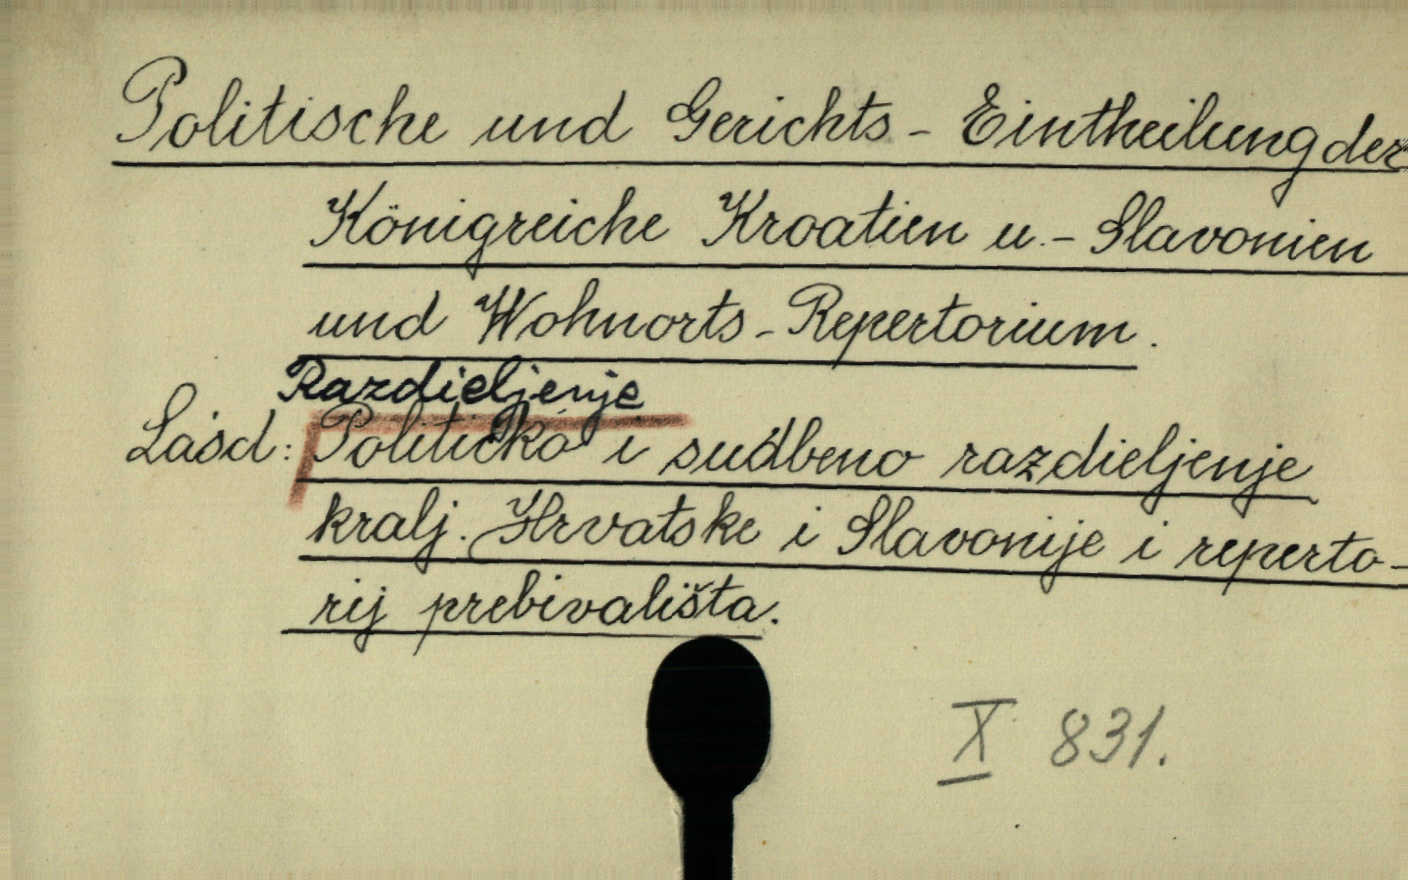 Politische und Gerichts-Eintheilung der
Königreiche Kroatien u.-Slavonien
und Wohnorts-Repertorium.
Razdieljenje
Lásd: Političko i sudbeno razdieljenje
kralj. Hrvatske i Slavonije i reperto-
rij prebivališta.
X 831.